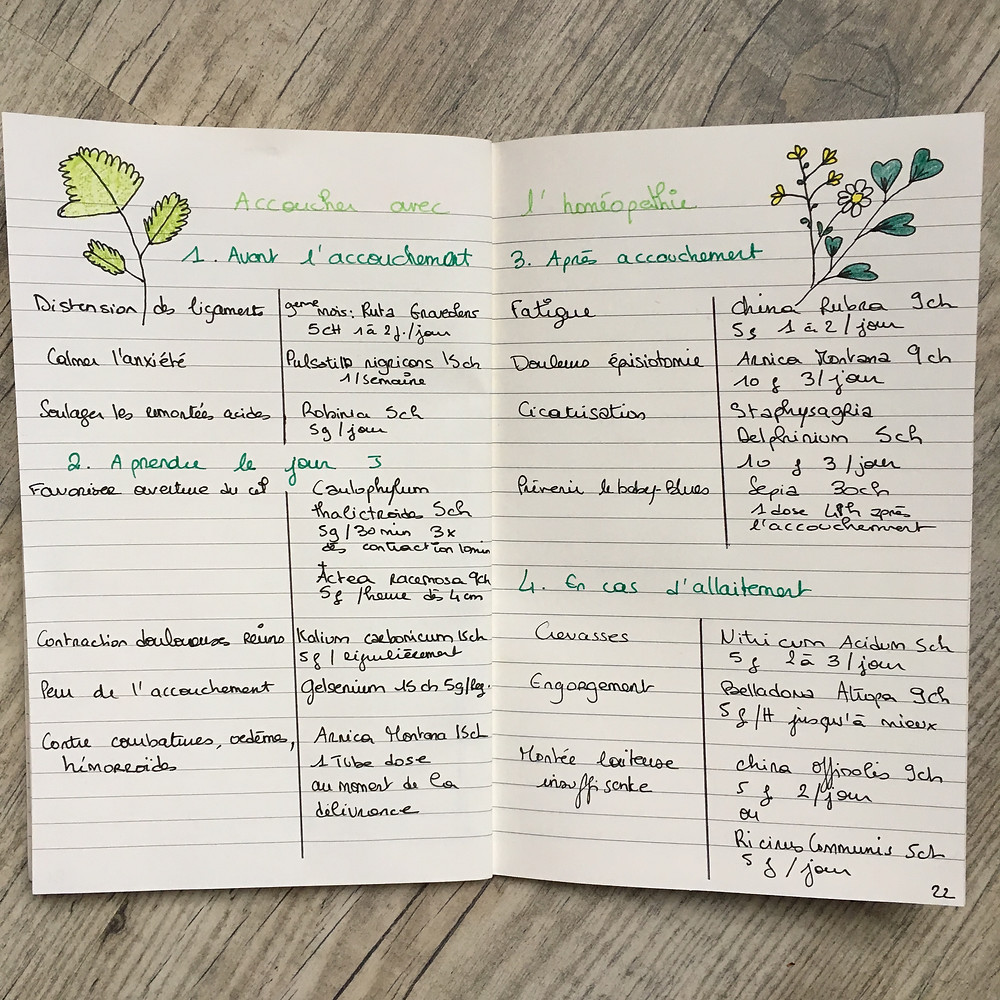 Accoucher avec l'homéopathie
1. Avant l'accouchement
Distension des ligaments
9eme mois: Ruta Graveolens
5CH 1 à 2g./jour
Calmer l'anxiété
Pulsatilla nigricans 15ch
1/semaine
Soulager les remontées acides
Robinia 5ch
5g/jour
2. A prendre le jour J
Favoriser ouverture du col
Caulophyllum
thalictroïdes 5ch
5g/30min 3x
dès contraction 10min
+
Actea racemosa 9ch
5g /heure dès 4cm
Contraction douloureuse Reins
Kalium carbonicum 15ch
5g / régulièrement
Peur de l'accouchement
Gelsenium 15ch 5g/Reg.
Contre courbatures, oedèmes,
hémorroïdes
Arnica Montana 15ch
1 Tube dose
au moment de la
délivrance
3. Après accouchement
Fatigue
China Rubra 9ch
5g 1 à 2/jour
Douleurs épisiotomie
Arnica Montana 9ch
10 g 3/jour
Cicatrisation
Staphysagria
Delphinium 5ch
10 g 3/jour
Prévenir le baby-blues
Sepia 30ch
1 dose 48h après
l'accouchement
4. En cas d'allaitement
Crevasses
Nitricum Acidum 5ch
5 g 2 à 3/jour
Engorgement
Belladona Atropa 9ch
5 g/H jusqu'à mieux
Montée laiteuse
insuffisante
China officinalis 9ch
5 g 2/jour
ou
Ricinus Communis 5ch
5 g /jour
22